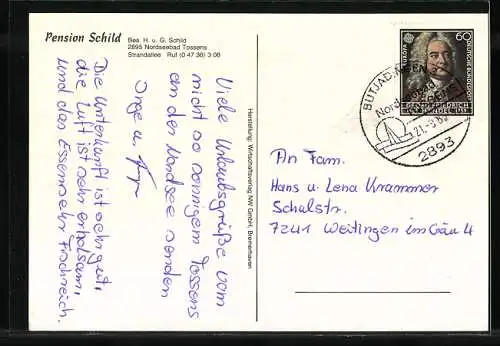 Pension Schild
Bes. H. u. G. Schild
2895 Nordseebad Tossens
Strandallee Ruf (0 47 36) 3 08
Viele Urlaubsgrüße vom
nicht so sonnigem Tossens
an der Nordsee senden
Inge u.
Die Unterkunft ist sehr gut,
die Luft ist sehr erholsam,
und das Essen sehr fischreich.
Herstellung: Wirtschaftsverlag NW GmbH, Bremerhaven
60
EUROPA
DEUTSCHE BUNDESPOST
GEORG FRIEDRICH
HÄNDEL
BUTJADINGEN
Nordseebad
21.-8.
2893
An Fam.
Hans u. Lena Krammer
Schulstr.
7241 Weitingen im Gäu 4